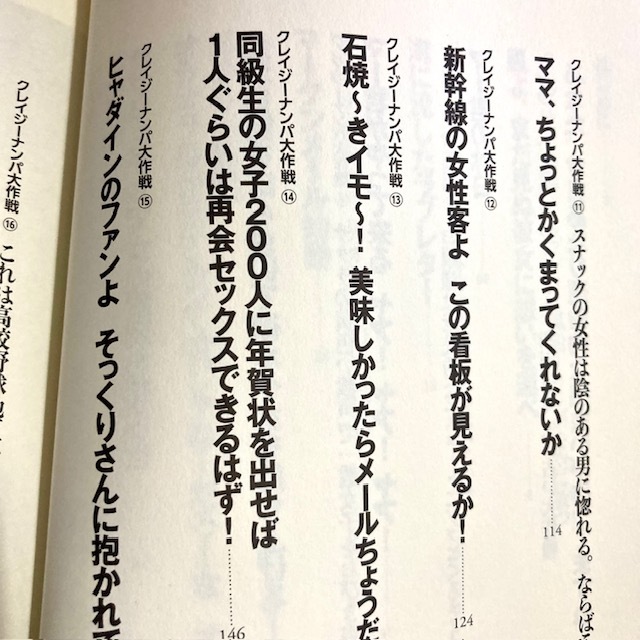 クレイジーナンパ大作戦 ⑪ スナックの女性は陰のある男に惚れる。ならば
ママ、ちょっとかくまってくれないか
114
クレイジーナンパ大作戦 ⑫
新幹線の女性客よ この看板が見えるか!
124
クレイジーナンパ大作戦 ⑬
石焼〜きイモ〜! 美味しかったらメールちょうだ
クレイジーナンパ大作戦 ⑭
同級生の女子200人に年賀状を出せば
1人ぐらいは再会セックスできるはず!
146
クレイジーナンパ大作戦 ⑮
ヒャダインのファンよ そっくりさんに抱かれて
クレイジーナンパ大作戦 ⑯ これは高校野球